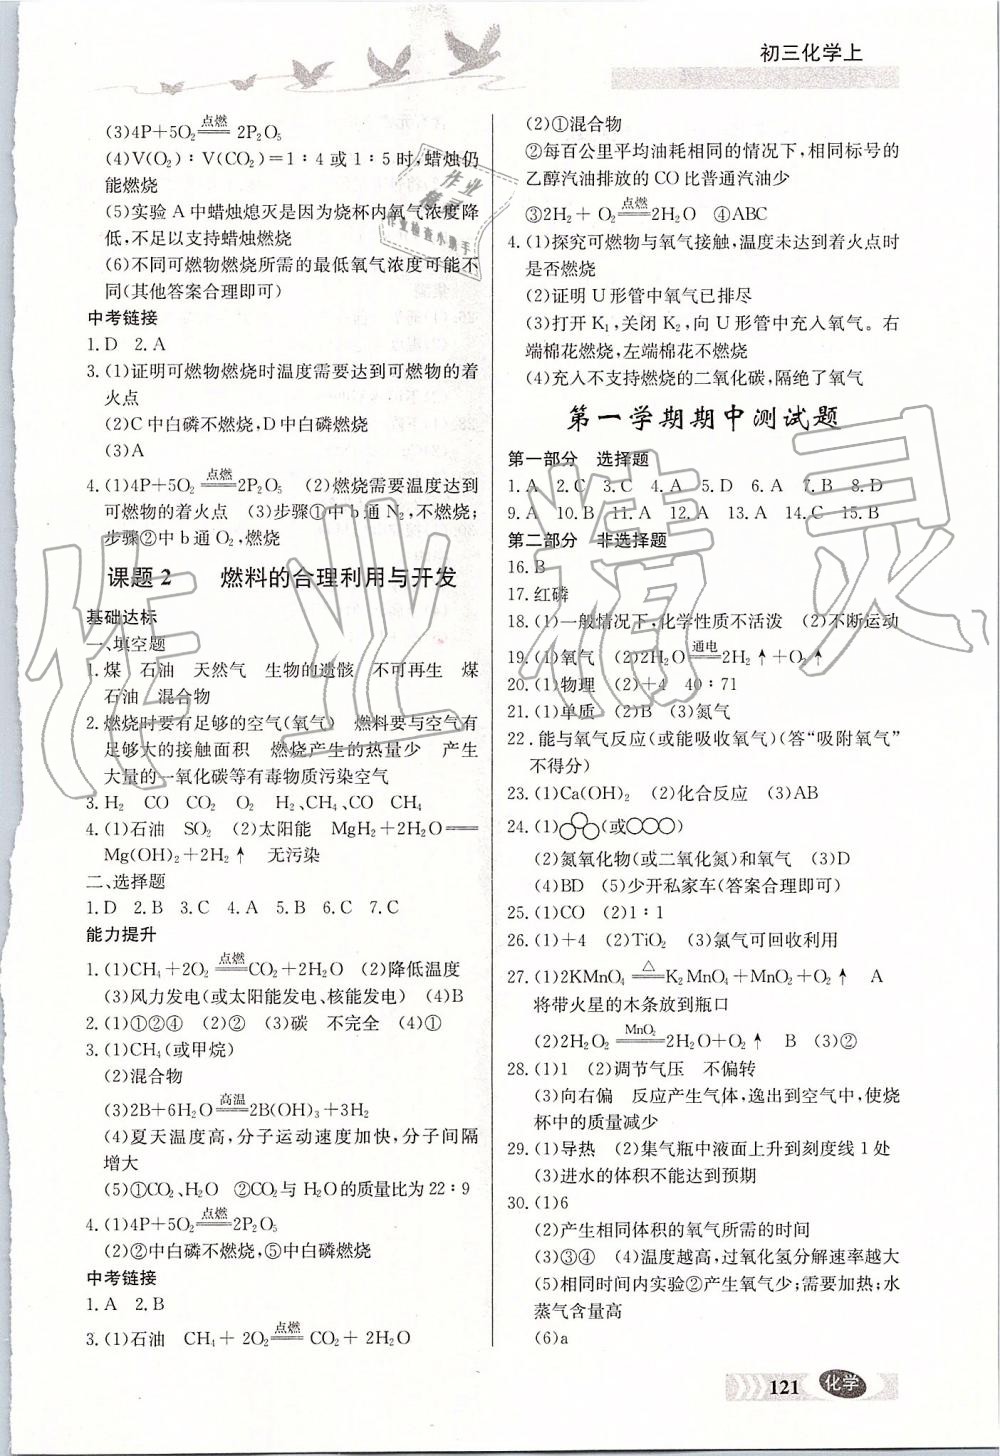 初三化学上
(3)4P+5O₂ =点燃= 2P₂O₅
(4)V(O₂)∶V(CO₂)=1∶4 或 1∶5 时,蜡烛仍
能燃烧
(5)实验 A 中蜡烛熄灭是因为烧杯内氧气浓度降
低,不足以支持蜡烛燃烧
(6)不同可燃物燃烧所需的最低氧气浓度可能不
同(其他答案合理即可)
中考链接
1. D 2. A
3. (1)证明可燃物燃烧时温度需要达到可燃物的着
火点
(2)C 中白磷不燃烧,D 中白磷燃烧
(3)A
4. (1)4P+5O₂ =点燃= 2P₂O₅ (2)燃烧需要温度达到
可燃物的着火点 (3)步骤①中 b 通 N₂,不燃烧;
步骤②中 b 通 O₂,燃烧
课题 2 燃料的合理利用与开发
基础达标
一、填空题
1. 煤 石油 天然气 生物的遗骸 不可再生 煤
石油 混合物
2. 燃烧时要有足够的空气(氧气) 燃料要与空气有
足够大的接触面积 燃烧产生的热量少 产生
大量的一氧化碳等有毒物质污染空气
3. H₂ CO CO₂ O₂ H₂、CH₄、CO CH₄
4. (1)石油 SO₂ (2)太阳能 MgH₂+2H₂O══
Mg(OH)₂+2H₂↑ 无污染
二、选择题
1. D 2. B 3. C 4. A 5. B 6. C 7. C
能力提升
1. (1)CH₄+2O₂ =点燃= CO₂+2H₂O (2)降低温度
(3)风力发电(或太阳能发电、核能发电) (4)B
2. (1)①②④ (2)② (3)碳 不完全 (4)①
3. (1)CH₄(或甲烷)
(2)混合物
(3)2B+6H₂O =高温= 2B(OH)₃+3H₂
(4)夏天温度高,分子运动速度加快,分子间隔
增大
(5)①CO₂、H₂O ②CO₂与 H₂O的质量比为 22∶9
4. (1)4P+5O₂ =点燃= 2P₂O₅
(2)②中白磷不燃烧,⑤中白磷燃烧
中考链接
1. A 2. B
3. (1)石油 CH₄ + 2O₂ =点燃= CO₂ + 2H₂O
(2)①混合物
②每百公里平均油耗相同的情况下,相同标号的
乙醇汽油排放的 CO 比普通汽油少
③2H₂ + O₂ =点燃= 2H₂O ④ABC
4. (1)探究可燃物与氧气接触,温度未达到着火点时
是否燃烧
(2)证明 U 形管中氧气已排尽
(3)打开 K₁,关闭 K₂,向 U 形管中充入氧气。右
端棉花燃烧,左端棉花不燃烧
(4)充入不支持燃烧的二氧化碳,隔绝了氧气
第一学期期中测试题
第一部分 选择题
1. A 2. C 3. C 4. A 5. D 6. A 7. B 8. D
9. A 10. B 11. A 12. A 13. A 14. C 15. B
第二部分 非选择题
16. B
17. 红磷
18. (1)一般情况下,化学性质不活泼 (2)不断运动
19. (1)氧气 (2)2H₂O =通电= 2H₂↑+O₂↑
20. (1)物理 (2)+4 40∶71
21. (1)单质 (2)B (3)氮气
22. 能与氧气反应(或能吸收氧气)(答“吸附氧气”
不得分)
23. (1)Ca(OH)₂ (2)化合反应 (3)AB
24. (1)○○○(或○○○)
(2)氮氧化物(或二氧化氮)和氧气 (3)D
(4)BD (5)少开私家车(答案合理即可)
25. (1)CO (2)1∶1
26. (1)+4 (2)TiO₂ (3)氯气可回收利用
27. (1)2KMnO₄ =△= K₂MnO₄+MnO₂+O₂↑ A
将带火星的木条放到瓶口
(2)2H₂O₂ =MnO₂= 2H₂O+O₂↑ B (3)②
28. (1)1 (2)调节气压 不偏转
(3)向右偏 反应产生气体,逸出到空气中,使烧
杯中的质量减少
29. (1)导热 (2)集气瓶中液面上升到刻度线 1 处
(3)进水的体积不能达到预期
30. (1)6
(2)产生相同体积的氧气所需的时间
(3)③④ (4)温度越高,过氧化氢分解速率越大
(5)相同时间内实验②产生氧气少;需要加热;水
蒸气含量高
(6)a
121 化学
作业精灵
作业
精灵
作业检查小助手